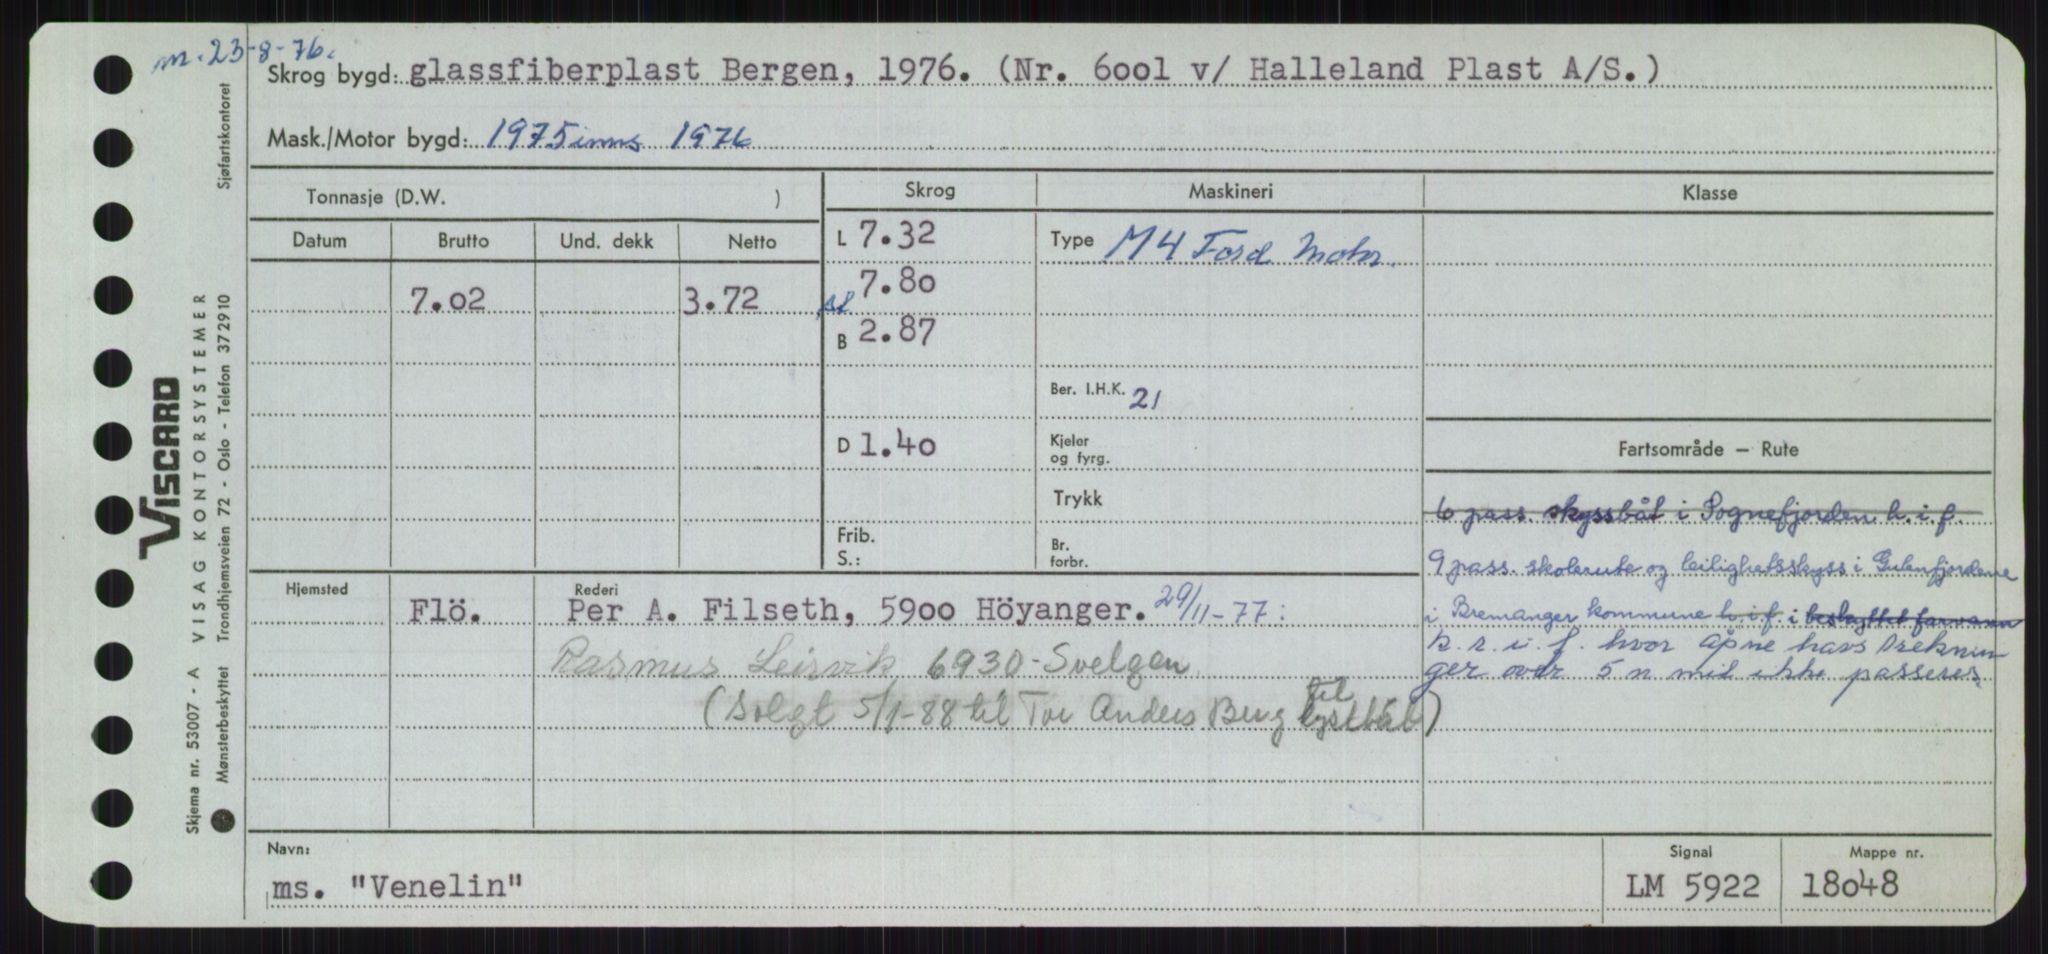 m. 23-8-76.
Skrog bygd: glassfiberplast Bergen, 1976. (Nr. 6001 v/ Halleland Plast A/S.)
Mask./Motor bygd: 1975 inns 1976
Tonnasje (D.W. )
Skrog
Maskineri
Klasse
Datum
Brutto
Und. dekk
Netto
L 7.32
Type M4 Ford Motor.
7.80
7.02
3.72
B 2.87
Ber. I.H.K. 21
D 1.40
Kjeler
og fyrg.
Fartsområde — Rute
Trykk
6 pass. skyssbåt i Sognefjorden h.i.f.
Frib.
S.:
Br.
forbr.
9 pass. skolerute og leilighetsskyss i Gulenfjordene
i Bremanger kommune h.i.f. i beskyttet farvann
k.r.i.f. hvor åpne havs streknin
ger over 5 n mil ikke passeres.
Hjemsted
Rederi
Flö.
Per A. Filseth, 5900 Höyanger. 29/11-77:
Rasmus Leirvik 6930 Svelgen
(Solgt 5/1-88 til Tor Anders Berg til lystbåt)
Navn:
ms. "Venelin"
Signal
LM 5922
Mappe nr.
18048
Sjøfartskontoret
VISCARD
VISAG KONTORSYSTEMER
Trondhjemsveien 72 - Oslo - Telefon 372910
Skjema nr. 53007 - A
Mønsterbeskyttet